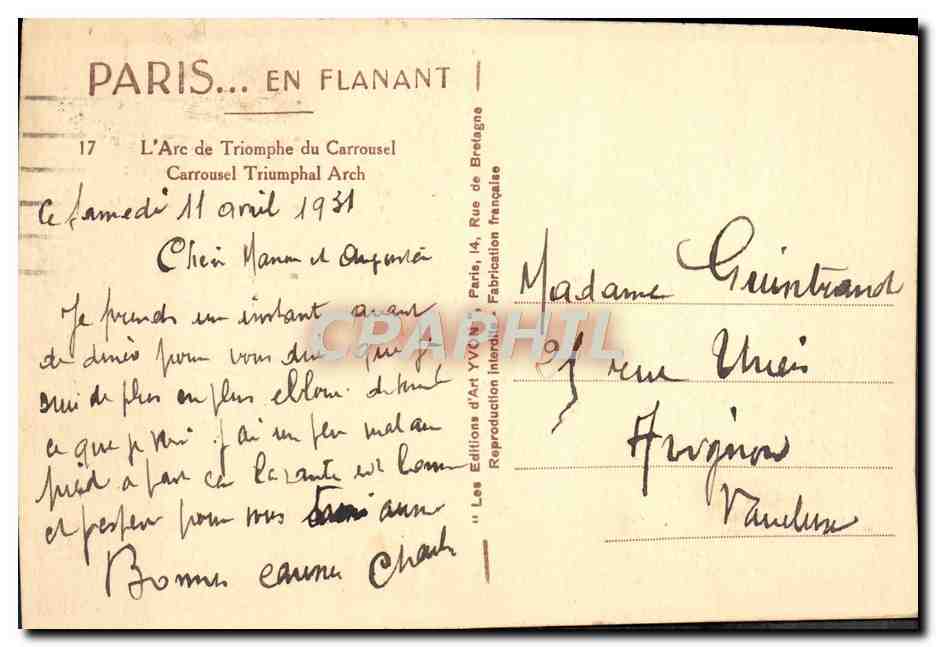 PARIS... EN FLANANT
17 L'Arc de Triomphe du Carrousel
Carrousel Triumphal Arch
Ce samedi 11 avril 1931
Je prends un instant avant
de diner pour vous dire que je
suis de plus en plus ébloui de tout
ce que je vois j'ai un peu mal au
pied a part ca la santé est bonne
et j'espère pour vous aussi
Bonnes
" Les Editions d'Art YVON ", Paris, 14, Rue de Bretagne
Reproduction interdite - Fabrication française
Madame Guintrand
rue
Avignon
Vaucluse
CPAPHIL